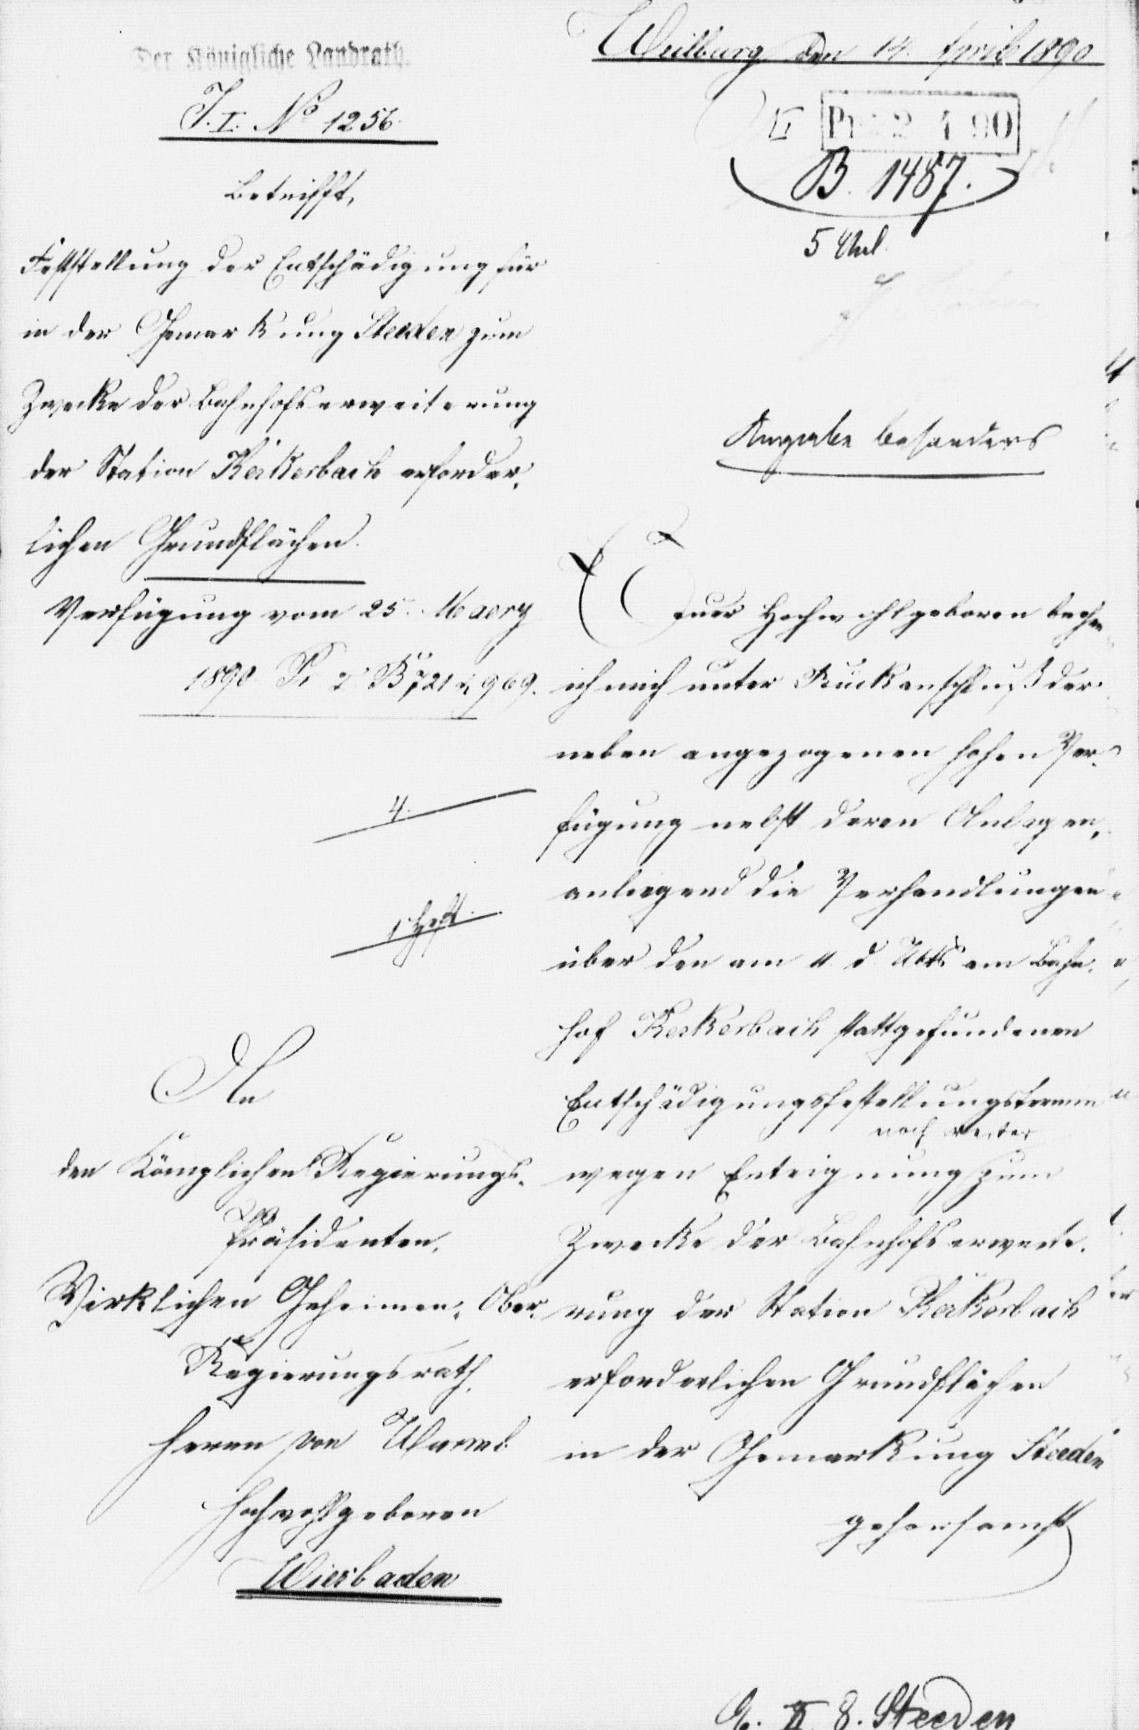 Der Königliche Landrath.
J. I. No 1256.
Betrifft,
Feststellung der Entschädigung für
in der Gemarkung Steeden zum
Zwecke der Bahnhofserweiterung
der Station Kerkerbach erforder-
lichen Grundflächen.
Verfügung vom 25. Maerz
1890 Pr. I. B 721 & 969.
4.
1 Heft.
An
den Königlichen Regierungs-
Präsidenten,
Wirklichen Geheimen Ober-
Regierungsrath,
Herrn von Wurmb
Hochwohlgeboren
Wiesbaden
Weilburg den 14. April 1890
B. 1487.
5 Anl.
besonders
Euer Hochwohlgeboren beehre
ich mich unter Rückanschluß der
neben angezogenen hohen Ver-
fügung nebst deren Anlagen,
anliegend die Verhandlungen
über den am 11. d. Mts. am Bahn-
hof Kerkerbach stattgefundenen
Entschädigungsfeststellungstermin
wegen Enteignung zum
noch weiter
Zwecke der Bahnhofserweite-
rung der Station Kerkerbach
erforderlichen Grundflächen
in der Gemarkung Steeden
gehorsamst
G. II 8. Steeden